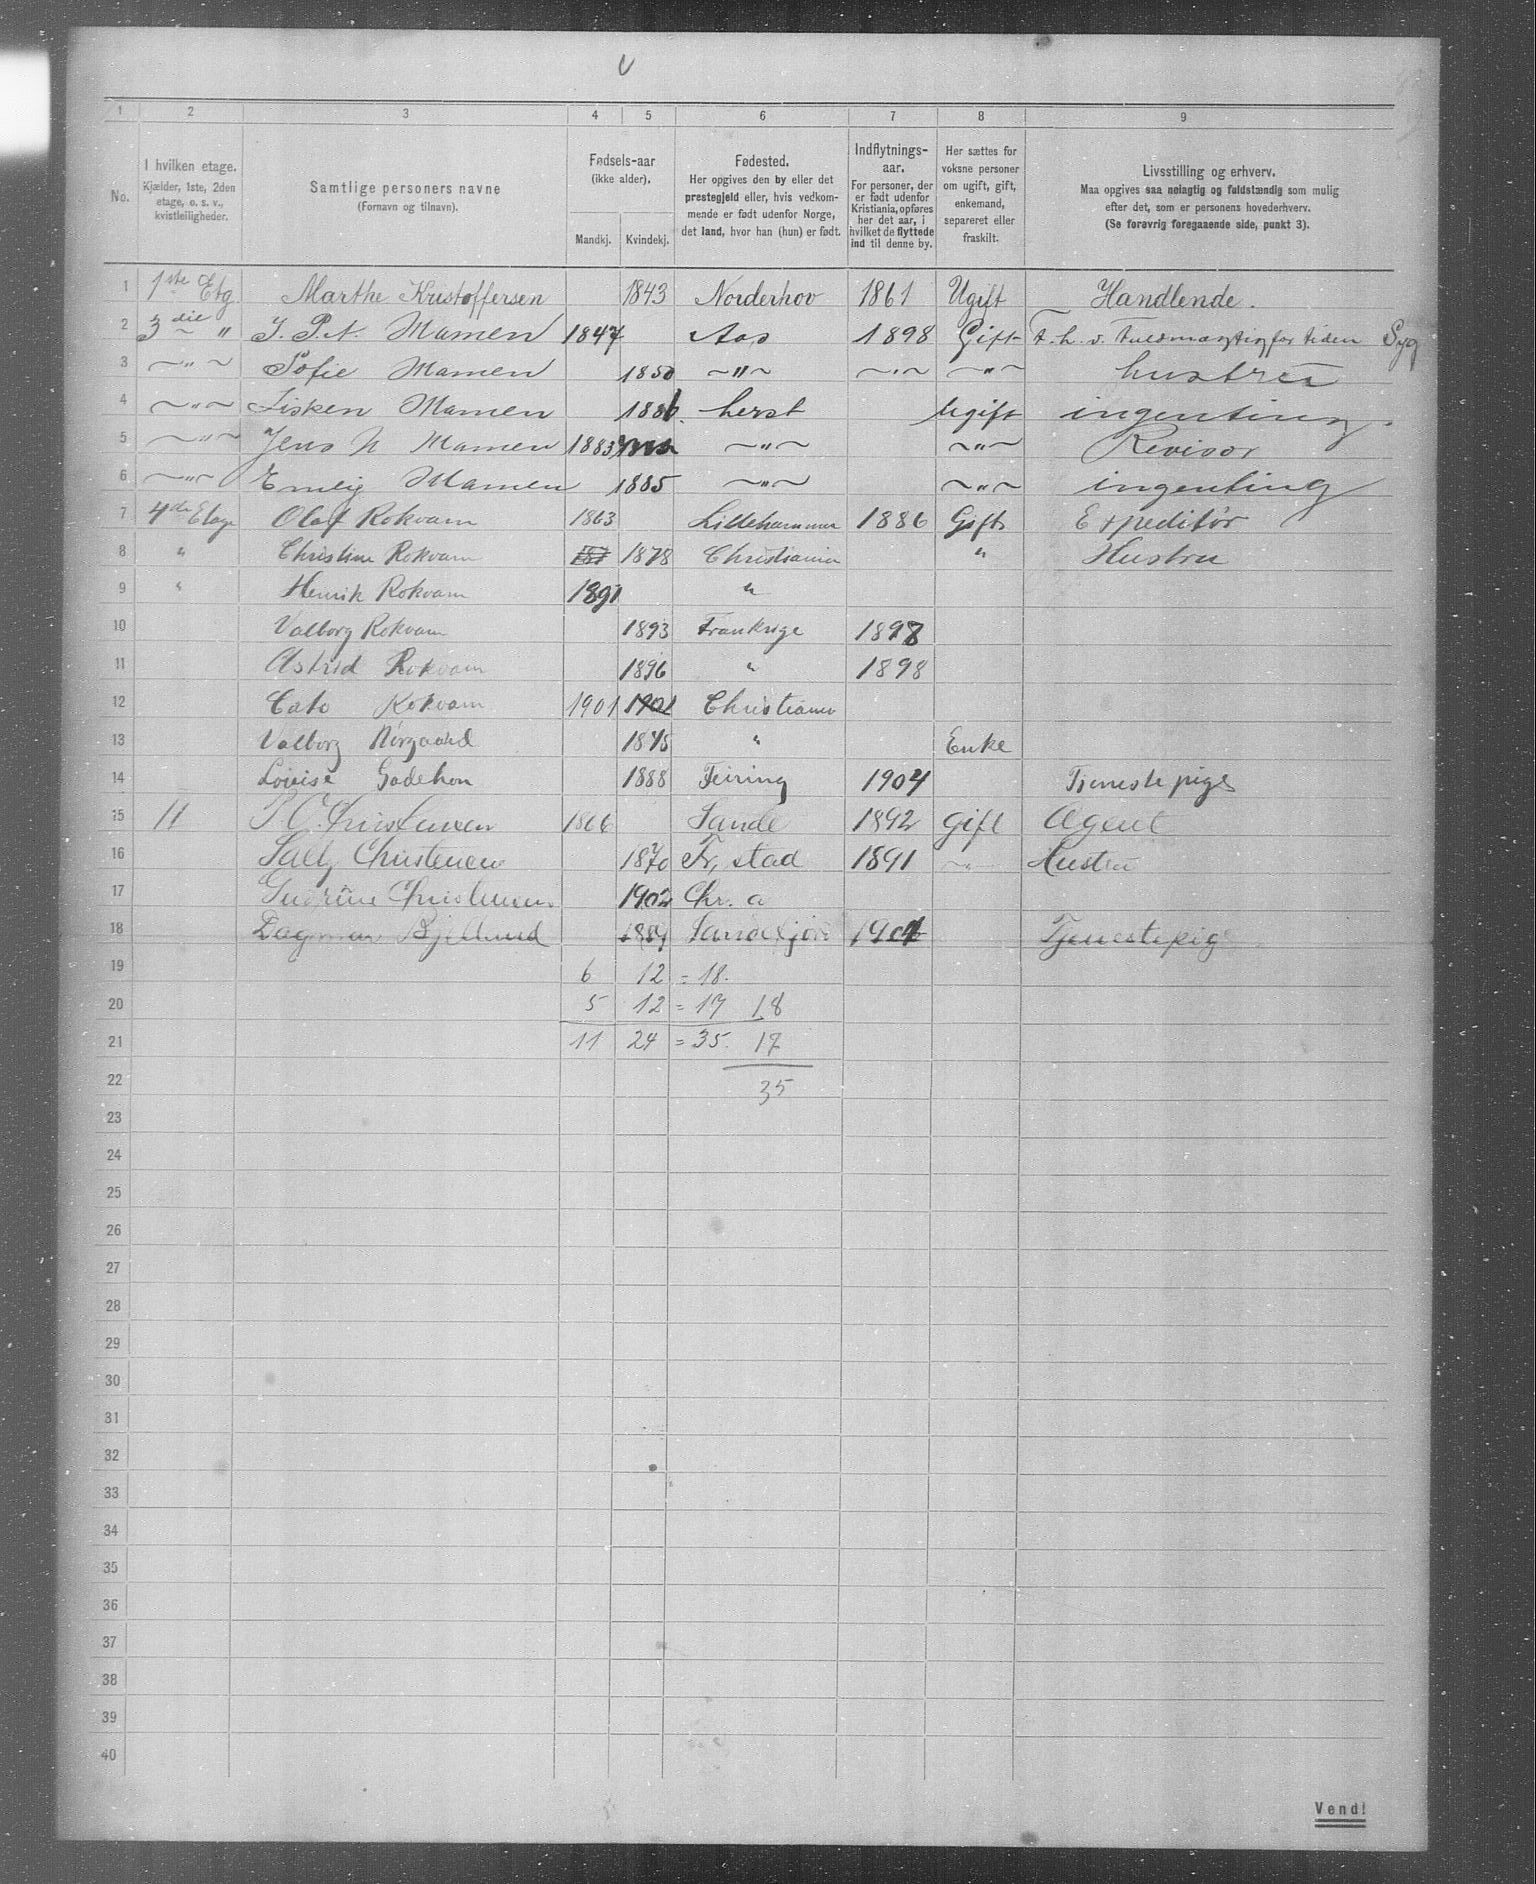 1 2 3 4 5 6 7 8 9
No.
I hvilken etage.
Kjælder, 1ste, 2den
etage, o. s. v.,
kvistleiligheder.
Samtlige personers navne
(Fornavn og tilnavn).
Fødsels-aar
(ikke alder).
Mandkj. Kvindekj.
Fødested.
Her opgives den by eller det
prestegjeld eller, hvis vedkom-
mende er født udenfor Norge,
det land, hvor han (hun) er født.
Indflytnings-
aar.
For personer, der
er født udenfor
Kristiania, opføres
her det aar, i
hvilket de flyttede
ind til denne by.
Her sættes for
voksne personer
om ugift, gift,
enkemand,
separeret eller
fraskilt.
Livsstilling og erhverv.
Maa opgives saa nøiagtig og fuldstændig som mulig
efter det, som er personens hovederhverv.
(Se forøvrig foregaaende side, punkt 3).
1 1ste Etg. Marthe Kristoffersen 1843 Norderhov 1861 Ugift Handlende.
2 3die " J. P. N. Mamen 1847 Aas 1898 Gift F. h. v. Fuldmægtig for tiden Syg
3 ~"~ Sofie Mamen 1850 ~"~ ~"~ ~"~ hustru
4 ~"~ Lisken Mamen 1886 herst Ugift ingenting.
5 ~"~ Jens N Mamen 1883 ~"~ ~"~ Revisor
6 ~"~ Emely Mamen 1885 ~"~ ~"~ ingenting
7 4de Etage Olaf Rokvam 1863 Lillehammer 1886 Gift Expeditør
8 " Christine Rokvam 1878 Christiania " Hustru
9 " Henrik Rokvam 1891 "
10 Valborg Rokvam 1893 Frankrige 1898
11 Astrid Rokvam 1896 " 1898
12 Cato Rokvam 1901 1901 Christiania
13 Valborg Nørgaard 1875 " Enke
14 Lovise Godehon 1888 Feiring 1904 Tjenestepige
15 11 P C. Christensen 1866 Sande 1892 Gift Agent
16 Sally Christensen 1870 Fr, stad 1891 ~"~ Hustru
17 Gudrun Christensen 1902 Chr. a
18 Dagmar Bjellund 1889 Sandefjord 1904 Tjenestepige
19 6 12 = 18.
20 5 12 = 17 18
21 11 24 = 35. 17
22 35
23
24
25
26
27
28
29
30
31
32
33
34
35
36
37
38
39
40
Vend!